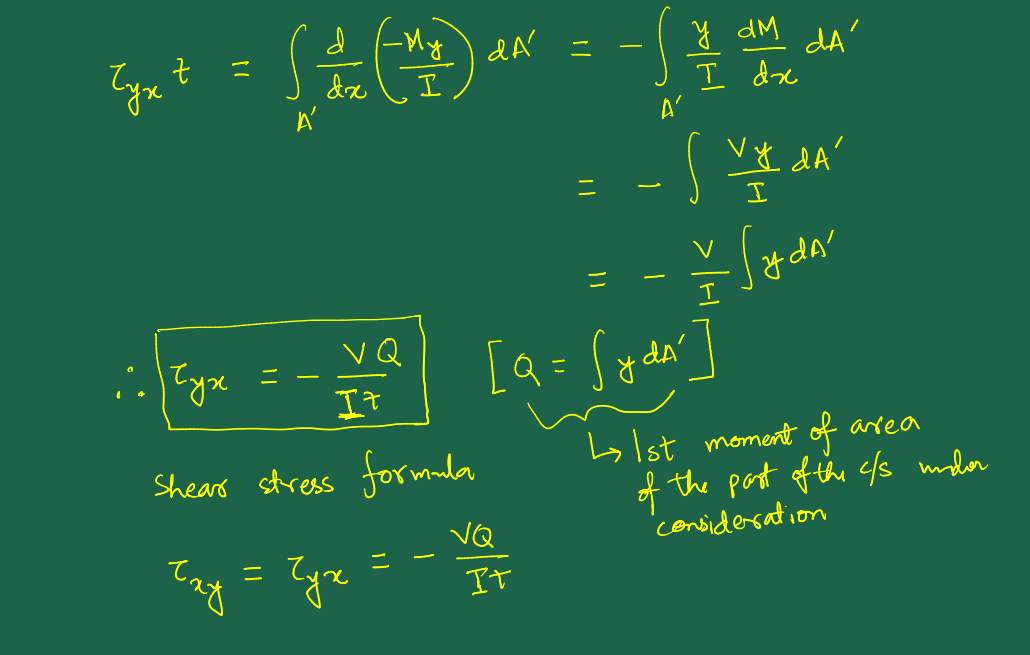 τ_yx t = ∫_A' d/dx (-My/I) dA' = - ∫_A' y/I dM/dx dA'
= - ∫ Vy/I dA'
= - V/I ∫ y dA'
∴ τ_yx = - VQ/It [Q = ∫ y dA']
↳ 1st moment of area
of the part of the c/s under
consideration
Shear stress formula
τ_xy = τ_yx = - VQ/It